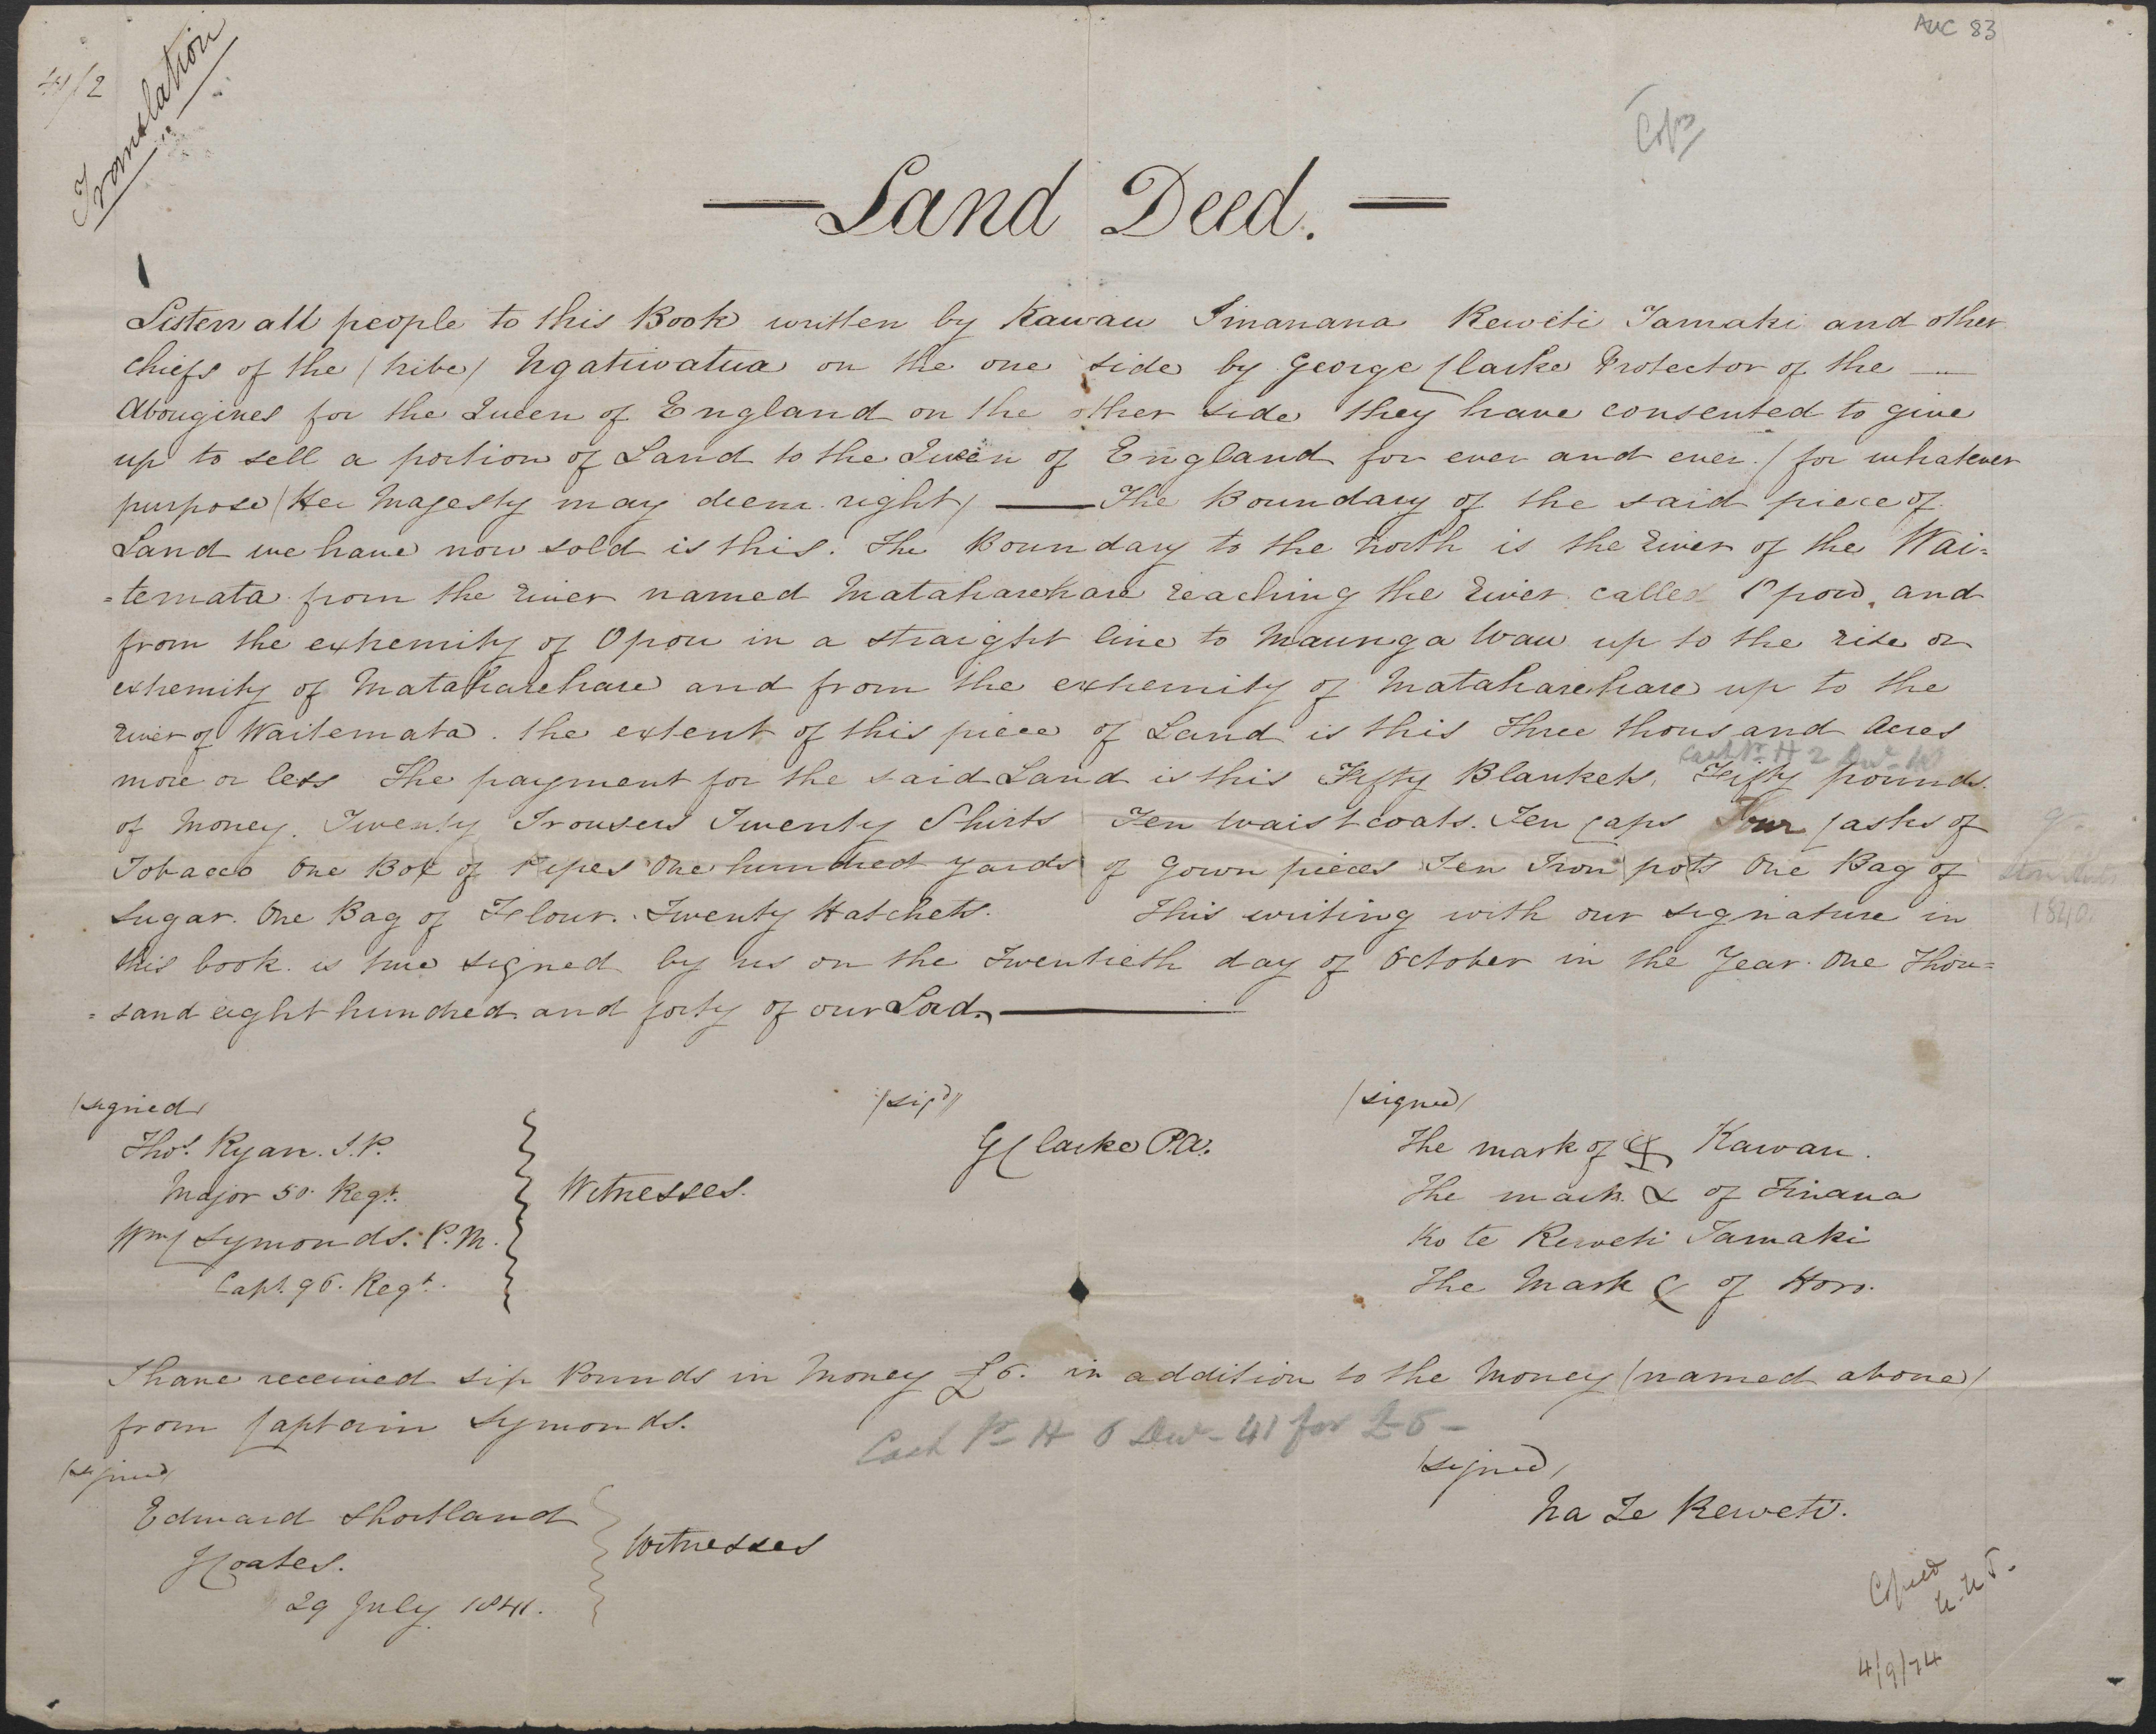 AUC 83
41/2
Translation
Copy
— Land Deed. —
Listen all people to this Book written by Kawau Tinanana Reweti Tamaki and other
chiefs of the (tribe) Ngatiwatua on the one side by George Clarke Protector of the —
Aborigines for the Queen of England on the other side they have consented to give
up to sell a portion of Land to the Queen of England for ever and ever. (for whatever
purpose (Her Majesty may deem right) — The Boundary of the said piece of
Land we have now sold is this. The Boundary to the North is the River of the Wai=
=temata from the River named Mataharehare reaching the River called Opou, and
from the extremity of Opou in a straight line to Maunga Wau up to the rise or
extremity of Mataharehare and from the extremity of Mataharehare up to the
River of Waitemata. the extent of this piece of Land is this Three thousand Acres
more or less The payment for the said Land is this Fifty Blankets, Fifty pounds
of Money. Twenty Trousers Twenty Shirts Ten Waistcoats. Ten Caps Four Casks of
Tobacco One Box of Pipes One hundred yards of Gown pieces Ten Iron pots One Bag of
Sugar. One Bag of Flour. Twenty Hatchets. This writing with our signature in
1840.
this book is true signed by us on the Twentieth day of October in the Year One Thou=
=sand eight hundred and forty of our Lord. —
(signed)
(sigd)
(signed)
Thos. Ryan. J.P.
Major 50. Regt.
Wm C Symonds. P.M.
Capt. 96. Regt.
Witnesses.
G Clarke P.A.
The mark of Kawau.
The mark x of Tinana
Ko te Reweti Tamaki
The Mark of Horo.
I have received six Pounds in Money £6. in addition to the Money (named above)
from Captain Symonds.
Cash Pr H 6 41 for £6 -
(signed)
(signed)
Edward Shortland
J Coates.
29 July 1841.
Witnesses
Na Te Reweti.
Copied
4/9/74